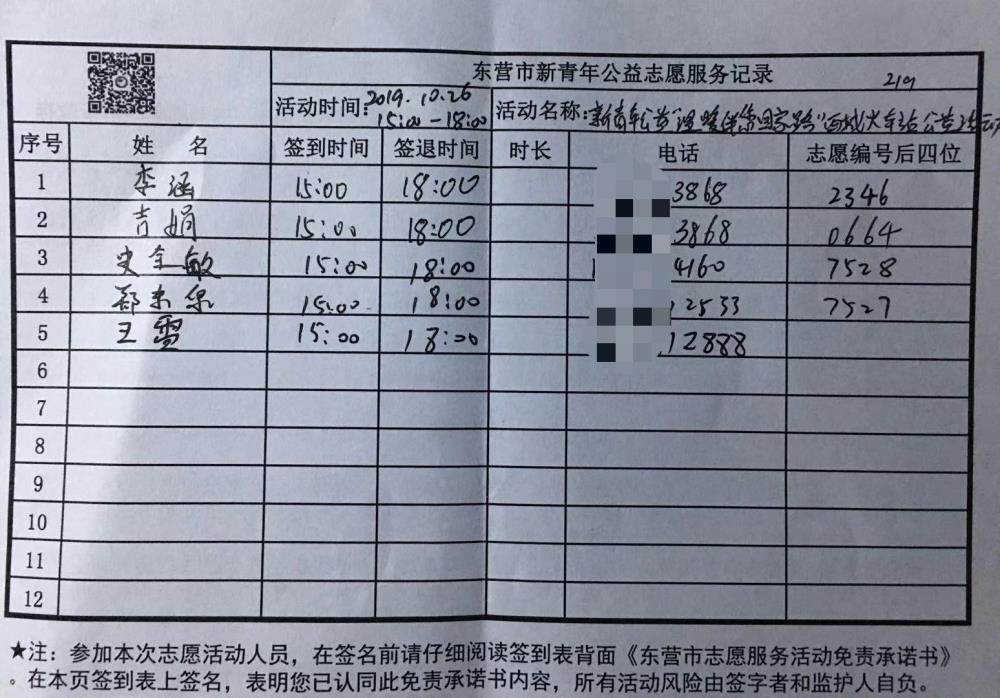 东营市新青年公益志愿服务记录 219
活动时间:2019.10.26 15:00-18:00 活动名称:新青年公益"温暖伴您回家路"西城火车站公益活动
序号 姓 名 签到时间 签退时间 时长 电话 志愿编号后四位
1 李涵 15:00 18:00 3868 2346
2 吉娟 15:00 18:00 3868 0664
3 史全敏 15:00 18:00 4160 7528
4 郑来泉 15:00 18:00 12533 7527
5 王雪 15:00 18:00 12888
6
7
8
9
10
11
12
★注：参加本次志愿活动人员，在签名前请仔细阅读签到表背面《东营市志愿服务活动免责承诺书》
。在本页签到表上签名，表明您已认同此免责承诺书内容，所有活动风险由签字者和监护人自负。